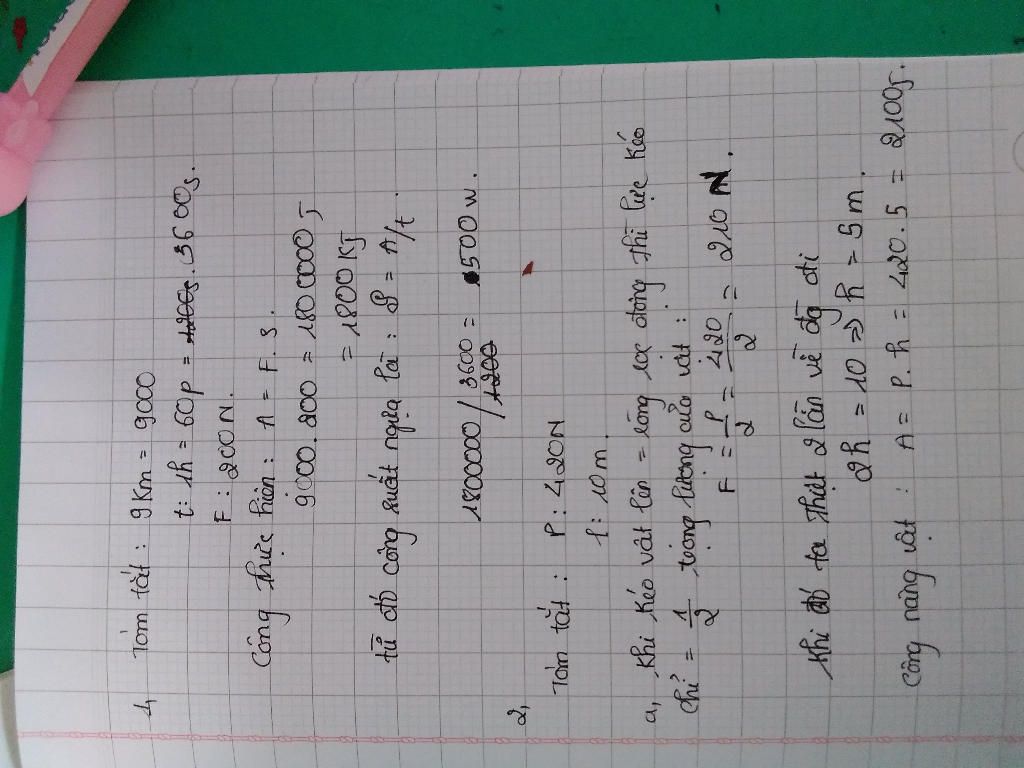 1, Tóm tắt : 9 Km = 9000
t : 1h = 60p = 1200s . 3600s.
F : 200 N.
Công thực hiện : A = F. s.
9000. 200 = 1800000 J
= 1800 KJ
từ đó công suất ngựa là : P = A/t.
1800000 / 3600 = 500 w.
1200
2,
Tóm tắt : P : 420N
l : 10 m.
a, Khi kéo vật lên = ròng rọc động thì lực kéo
chỉ = 1/2 trọng lượng của vật :
F = P/2 = 420/2 = 210 N.
Khi đó ta thiệt 2 lần về đg đi
2h = 10 => h = 5 m.
Công nâng vật : A = P. h = 420. 5 = 2100J.